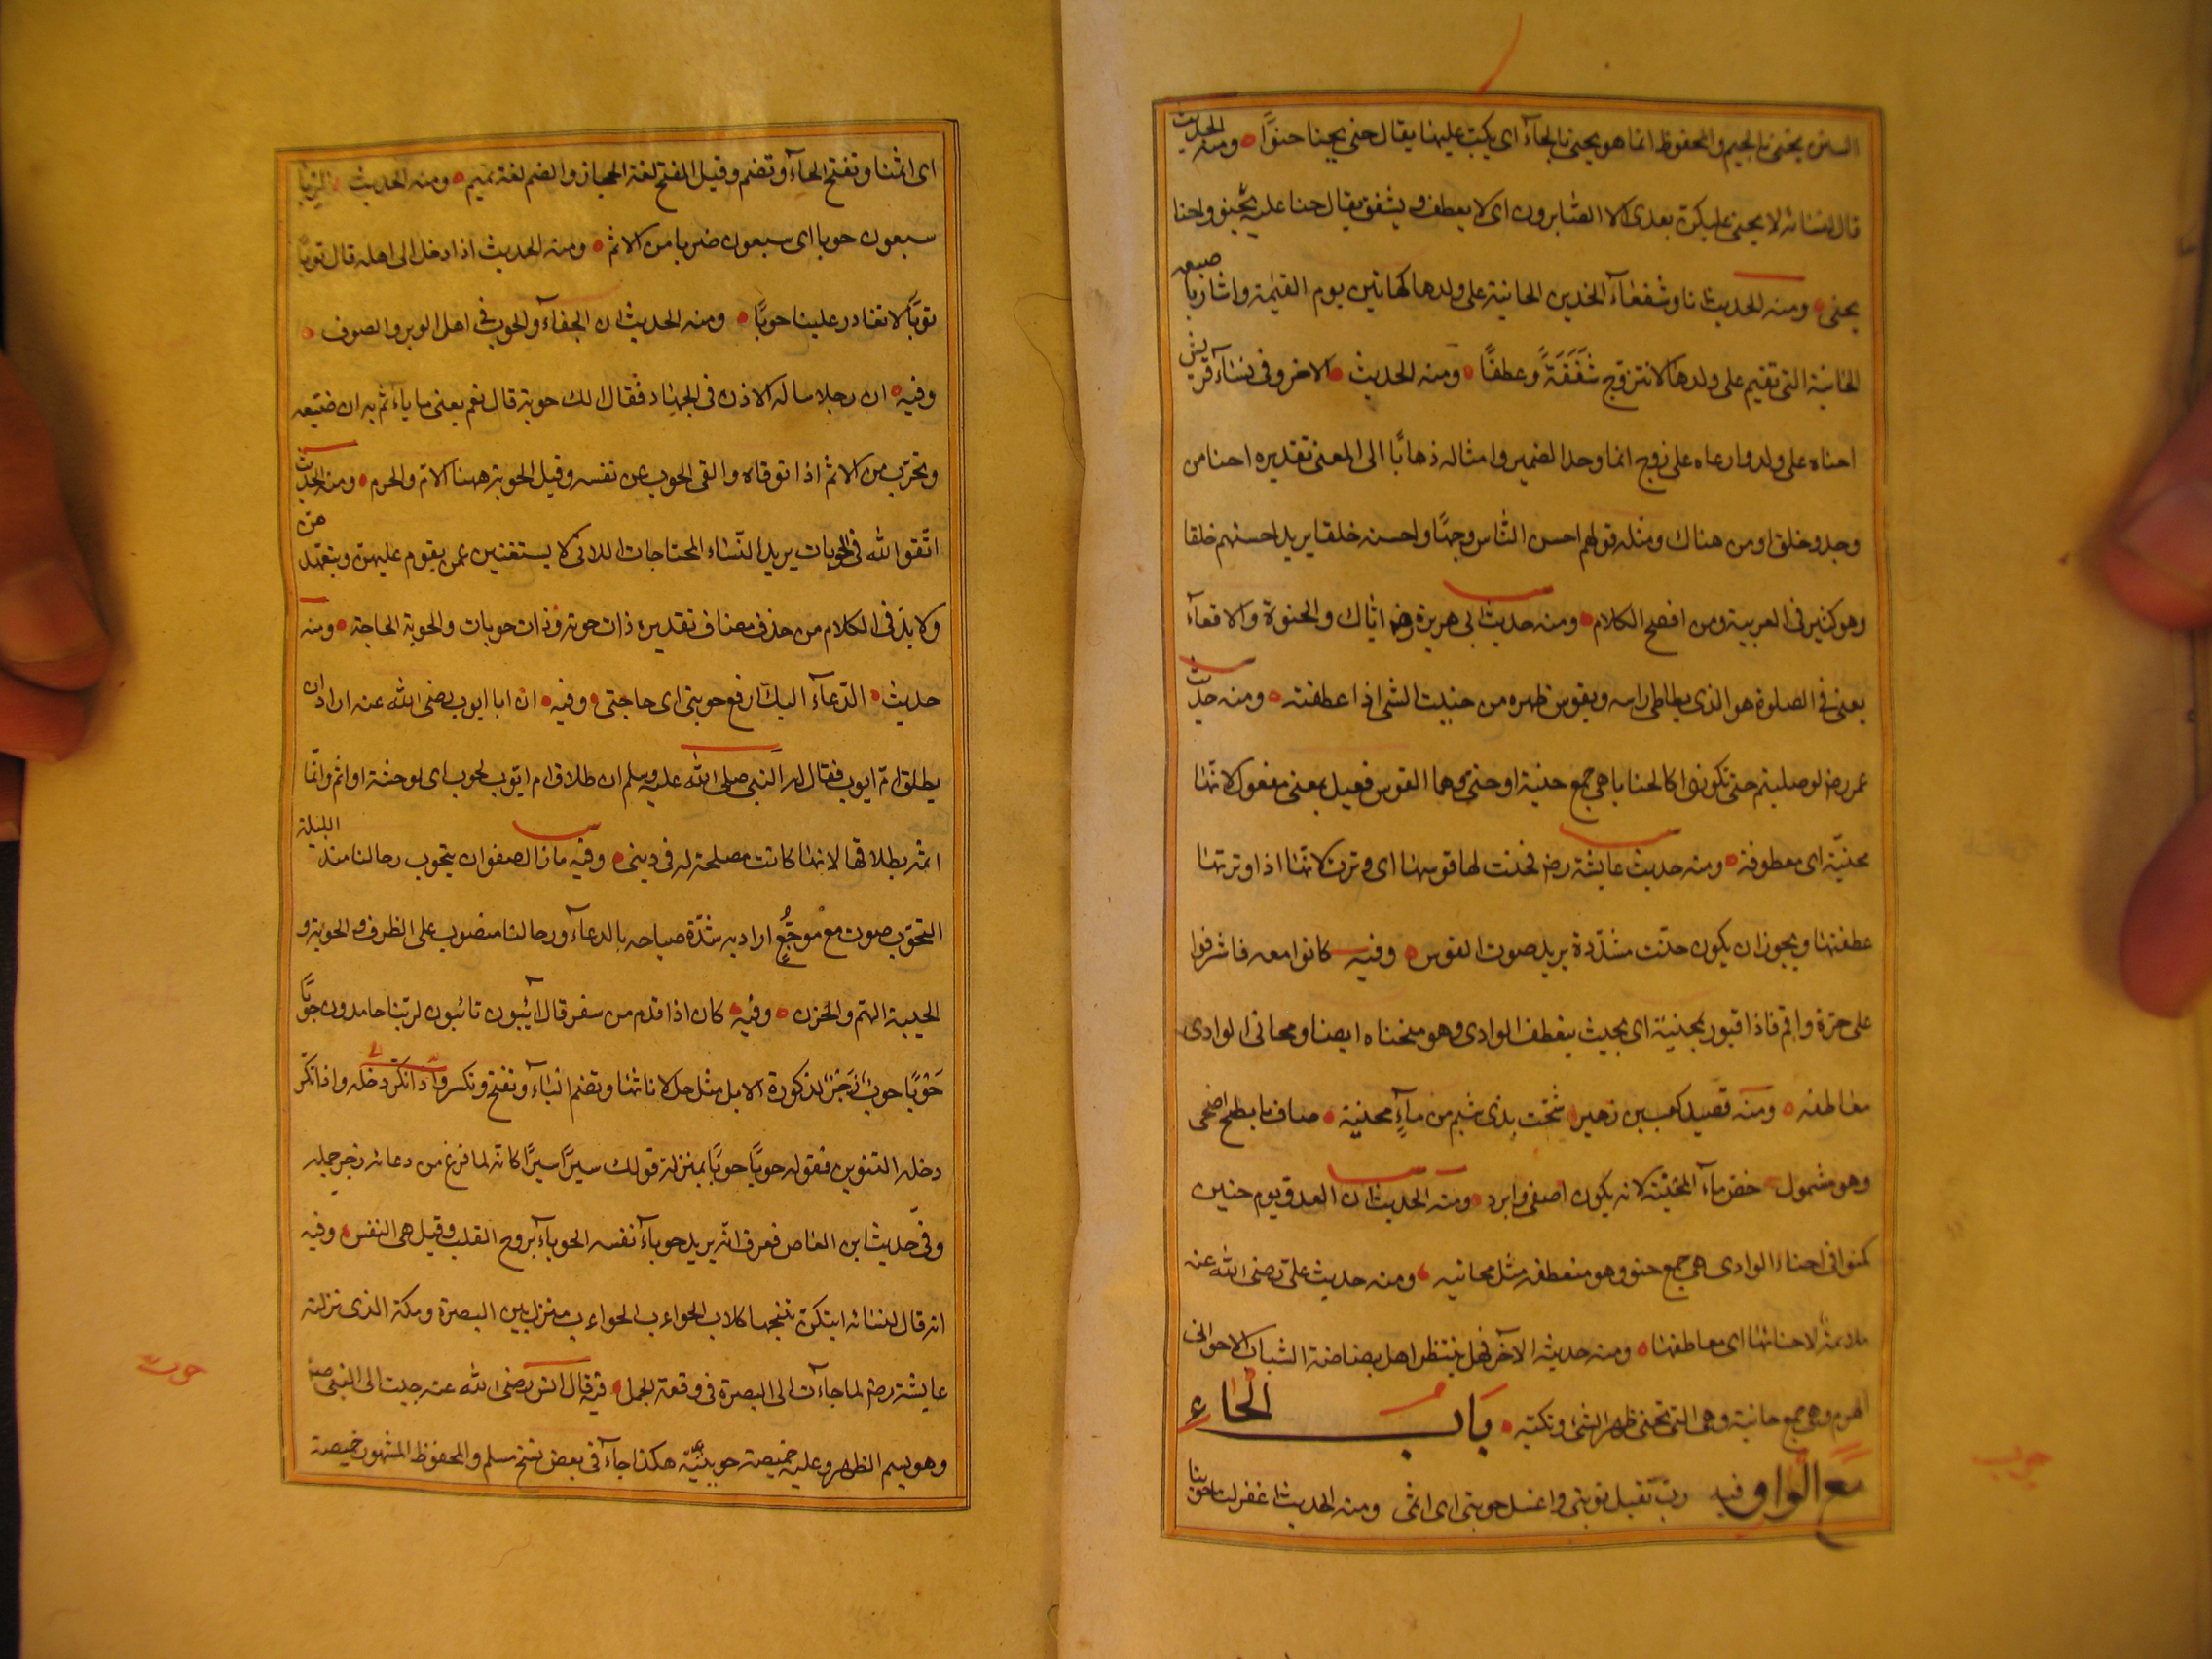 السنن يجنى بالجيم والمحفوظ انما هو يحنى بالحاء اى يكب عليها يقال حنى يحنا حنوًّا ومنه الحديث
قال لنسائه لا يحنى عليكن بعدى الا الصابرون اى لا يعطف ويشفق يقال حنا عليه يحنو واحنا
يحنى ومنه الحديث انا وشفعاء الخدين الحانية على ولدها كهاتين يوم القيمة واشار باصبعيه
الحانية التى تقيم على ولدها لا تتزوج شَفَقَةً وعطفًا ومنه الحديث الاخر وفى نساء قريش
احناه على ولد وارعاه على زوج انما وحد الضمير وامثاله ذهابًا الى المعنى تقديره احنا من
وجد وخلق او من هناك ومثله قولهم احسن الناس وجهًا واحسنه خلقا يريد احسنهم خلقا
وهو كثير فى العربية ومن افصح الكلام ومنه حديث ابى هريرة رض اياك والحنوة والاقعاء
يعنى فى الصلوة هو الذى يطاطى راسه ويقوس ظهره من حنيت الشى اذا عطفته ومنه حديث
عمر رض لو صليتم حتى تكونوا كالحنايا هى جمع حنية او حنى وهما القوس فعيل بمعنى مفعول لانها
محنيّة اى معطوفة ومنه حديث عايشة رض فحنت لها قوسها اى وترت لانها اذا وترتها
عطفتها ويجوز ان يكون حنّت مشدّدة يريد صوت القوس وفيه كانوا معه فاشرفوا
على حرّة واقم فاذا قبور بمحنية اى بحيث ينعطف الوادى وهو منحناه ايضا ومحانى الوادى
معاطفه ومنه قصيد كعب بن زهير شجّت بذى شبم من ماء محنية صاف بابطح اضحى
وهو مشمول خص ماء المحنية لانه يكون اصفى وابرد ومنه الحديث ان العدو يوم حنين
كمنوا فى احناء الوادى هى جمع حنو وهو منعطفه مثل محانيه ومنه حديث على رضى الله عنه
ملايمة لاحنائها اى معاطفها ومنه حديثه الآخر فهل ينتظر اهل بضاضة الشباب الا حوانى
الهرم وهى جمع حانية وهى التى تحنى ظهر الشئ وتكبه باب الحاء
مع الواو فيه رب تقبل توبتى واغسل حوبتى اى اثمى ومنه الحديث اغفر لنا حوبنا
حوب
اى اثمنا وتفتح الحاء وتضم وقيل الفتح لغة الحجاز والضم لغة تميم ومنه الحديث الربا
سبعون حوبا اى سبعون ضربا من الاثم ومنه الحديث اذا دخل الى اهله قال توبًا
توبًا لا تغادر علينا حوبًا ومنه الحديث ان الجفاء والحوب فى اهل الوبر والصوف
وفيه ان رجلا ساله الاذن فى الجهاد فقال الك حوبة قال نعم يعنى ما ياثم به ان ضيّعه
وتحوّب من الاثم اذا توقاه والقى الحوب عن نفسه وقيل الحوبة ههنا الام والحرم ومنه الحديث
اتّقوا الله فى الحوبات يريد النساء المحتاجات اللاتى لا يستغنين عمن يقوم عليهن ويتعهدهن
ولا بد فى الكلام من حذف مضاف تقديره ذات حوبة وذات حوبات والحوبة الحاجة ومنه
حديث الدعاء اليك ارفع حوبتى اى حاجتى وفيه ان ابا ايوب رضى الله عنه اراد ان
يطلق امّ ايوب فقال له النبى صلى الله عليه وسلم ان طلاق ام ايّوب لحوب اى لوحشة او اثم وانما
اثمه بطلاقها لانها كانت مصلحة له فى دينه وفيه ما زال صفوان يتحوب رحالنا منذ الليلة
التحوّب صوت مع توجّع اراد به شدّة صياحه بالدعاء ورحالنا منصوب على الظرف والحوبة و
الحيبة الهم والحزن وفيه كان اذا قدم من سفر قال آئبون تائبون لربّنا حامدون حوبًا
حَوْبًا حوب زجر لذكورة الابل مثل حل لاناثها وتضم الباء وتفتح وتكسر واذا نكر دخله واذا نكر
دخله التنوين فقوله حوبًا حوبًا بمنزلة قولك سيرًا سيرًا كانه لما فرغ من دعائه زجر جمله
وفى حديث ابن العاص فعرف انه يريد حوباء نفسه الحوباء روح القلب وقيل هى النفس وفيه
انه قال لنسائه ايتكنّ تنبحها كلاب الحواءب الحواءب منزل بين البصرة ومكة الذى نزلته
عايشة رض لما جاءت الى البصرة فى وقعة الجمل فيه قال انس رضى الله عنه جيت الى النبى صلعم
وهو يسم الظهر وعليه خميصة حويتيّة هكذا جاء فى بعض نسخ مسلم والمحفوظ المشهور خميصة
حوت